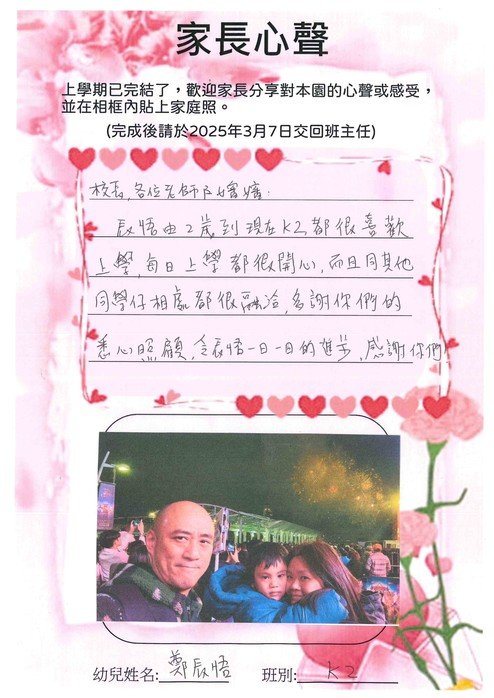 家長心聲
上學期已完結了，歡迎家長分享對本園的心聲或感受，
並在相框內貼上家庭照。
(完成後請於2025年3月7日交回班主任)
校長,各位老師及嬸嬸:
辰悟由2歲到現在K2,都很喜歡
上學,每日上學都很開心,而且同其他
同學仔相處都很融洽,多謝你們的
悉心照顧,令辰悟一日一日的進步,感謝你們
幼兒姓名: 鄭辰悟 班別: K2